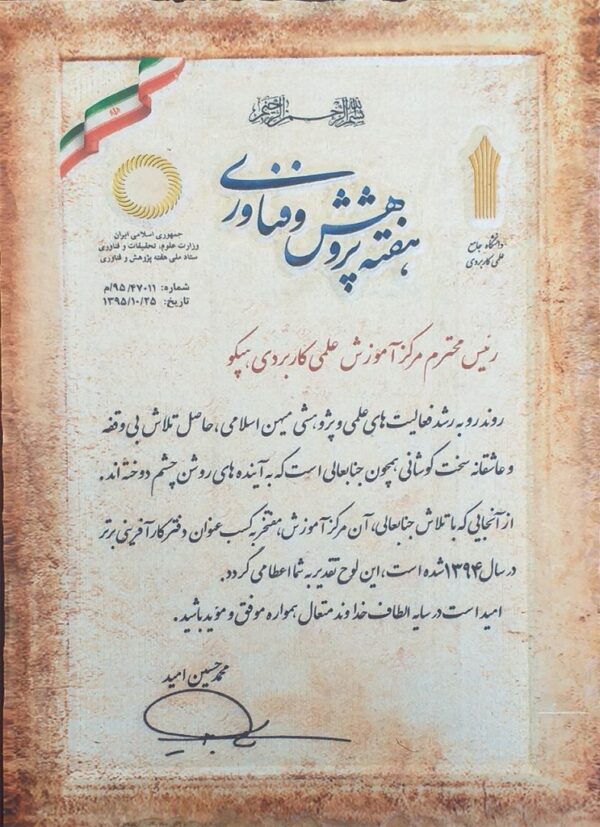 بسم الله الرحمن الرحیم
هفته پژوهش و فناوری
دانشگاه جامع
علمی کاربردی
جمهوری اسلامی ایران
وزارت علوم، تحقیقات و فناوری
ستاد ملی هفته پژوهش و فناوری
شماره: ۹۵/۴۷۰۱۱/م
تاریخ: ۱۳۹۵/۱۰/۲۵
رئیس محترم مرکز آموزش علمی کاربردی هپکو
روند رو به رشد فعالیت های علمی و پژوهشی میهن اسلامی، حاصل تلاش بی وقفه
و عاشقانه سخت کوشانی همچون جنابعالی است که به آینده های روشن چشم دوخته اند.
از آنجایی که با تلاش جنابعالی، آن مرکز آموزش، مفتخر به کسب عنوان دفتر کارآفرینی برتر
در سال ۱۳۹۴ شده است، این لوح تقدیر به شما اعطا می گردد.
امید است در سایه الطاف خداوند متعال همواره موفق و مؤید باشید.
محمد حسین امید